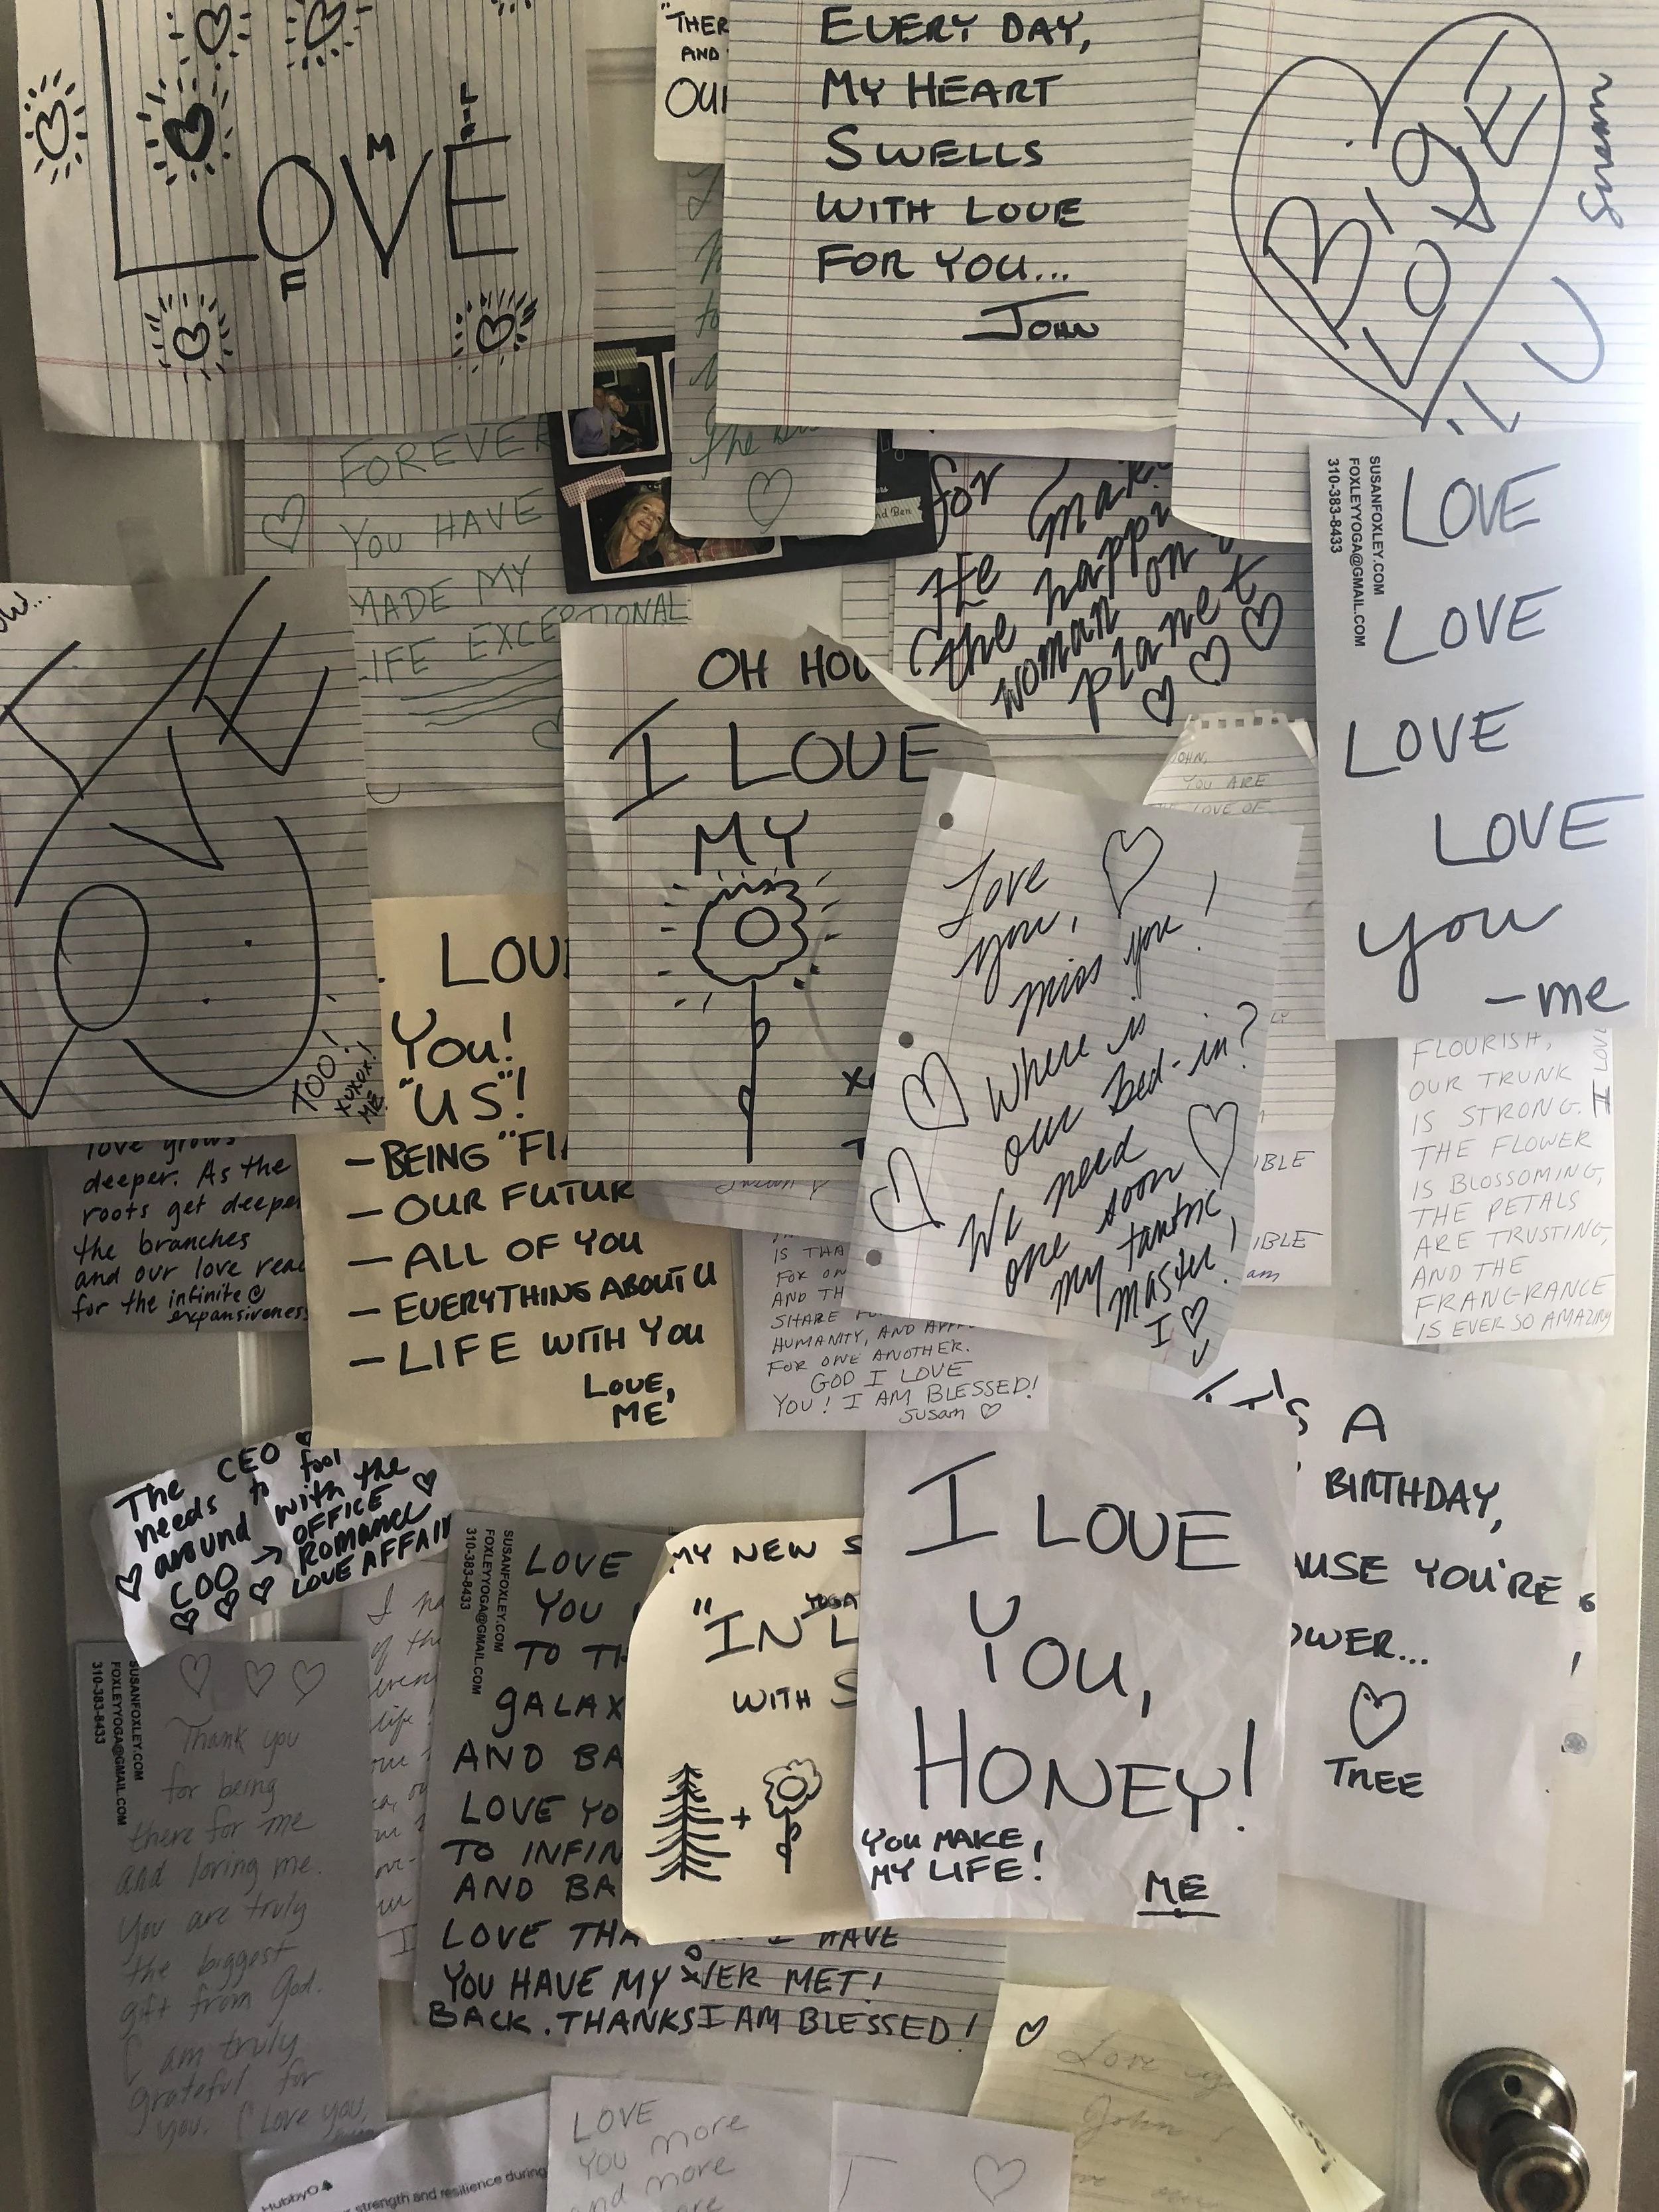 LOVE
M
F
"THER
AND
OUI
EVERY DAY,
MY HEART
SWELLS
WITH LOVE
FOR YOU...
JOHN
BIG
LOVE
Susan
FOREVER
YOU HAVE
MADE MY
LIFE EXCEPTIONAL
the
nd Ben
for
He makes
the happi
woman on
planet
SUSANFOXLEY.COM
FOXLEYYOGA@GMAIL.COM
310-383-8433
LOVE
LOVE
LOVE
LOVE
you
-me
TOO!
XOXOX!
ME
OH HOW
I LOVE
MY
JOHN,
YOU ARE
LOVE OF
Love
you,
miss you!
Where is
our bed-in?
We need
one soon
my tantric
master!
I ♡
U
LOVE
You!
"US"!
- BEING "FI
- OUR FUTUR
- ALL OF YOU
- EVERYTHING ABOUT U
- LIFE WITH YOU
LOVE,
ME
love grows
deeper. As the
roots get deeper
the branches
and our love reac
for the infinite
expansiveness
FLOURISH,
OUR TRUNK
IS STRONG.
THE FLOWER
IS BLOSSOMING,
THE PETALS
ARE TRUSTING,
AND THE
FRANGRANCE
IS EVER SO AMAZING
IBLE
IBLE
am
IS THA
FOR ON
AND TH
SHARE
HUMANITY, AND APP
FOR ONE ANOTHER.
GOD I LOVE
YOU! I AM BLESSED!
Susan ♡
The CEO
needs to fool
around with the
COO → OFFICE
ROMANCE
LOVE AFFAIR
IT'S A
BIRTHDAY,
AUSE YOU'RE
OWER...
♡
TREE
I LOVE
YOU,
HONEY!
YOU MAKE
MY LIFE!
ME
MY NEW S
YOGA
"IN L
WITH S
+
SUSANFOXLEY.COM
FOXLEYYOGA@GMAIL.COM
310-383-8433
LOVE
YOU
TO TH
GALAX
AND BA
LOVE YO
TO INFIN
AND BA
LOVE THA
YOU HAVE MY
BACK. THANKS
I HAVE
VER MET!
I AM BLESSED!
SUSANFOXLEY.COM
FOXLEYYOGA@GMAIL.COM
310-383-8433
Thank you
for being
there for me
and loving me.
You are truly
the biggest
gift from God.
I am truly
grateful for
you. I love you,
I
of th
even
life
Love
John
HubbyO
strength and resilience during
LOVE
YOU more
and more